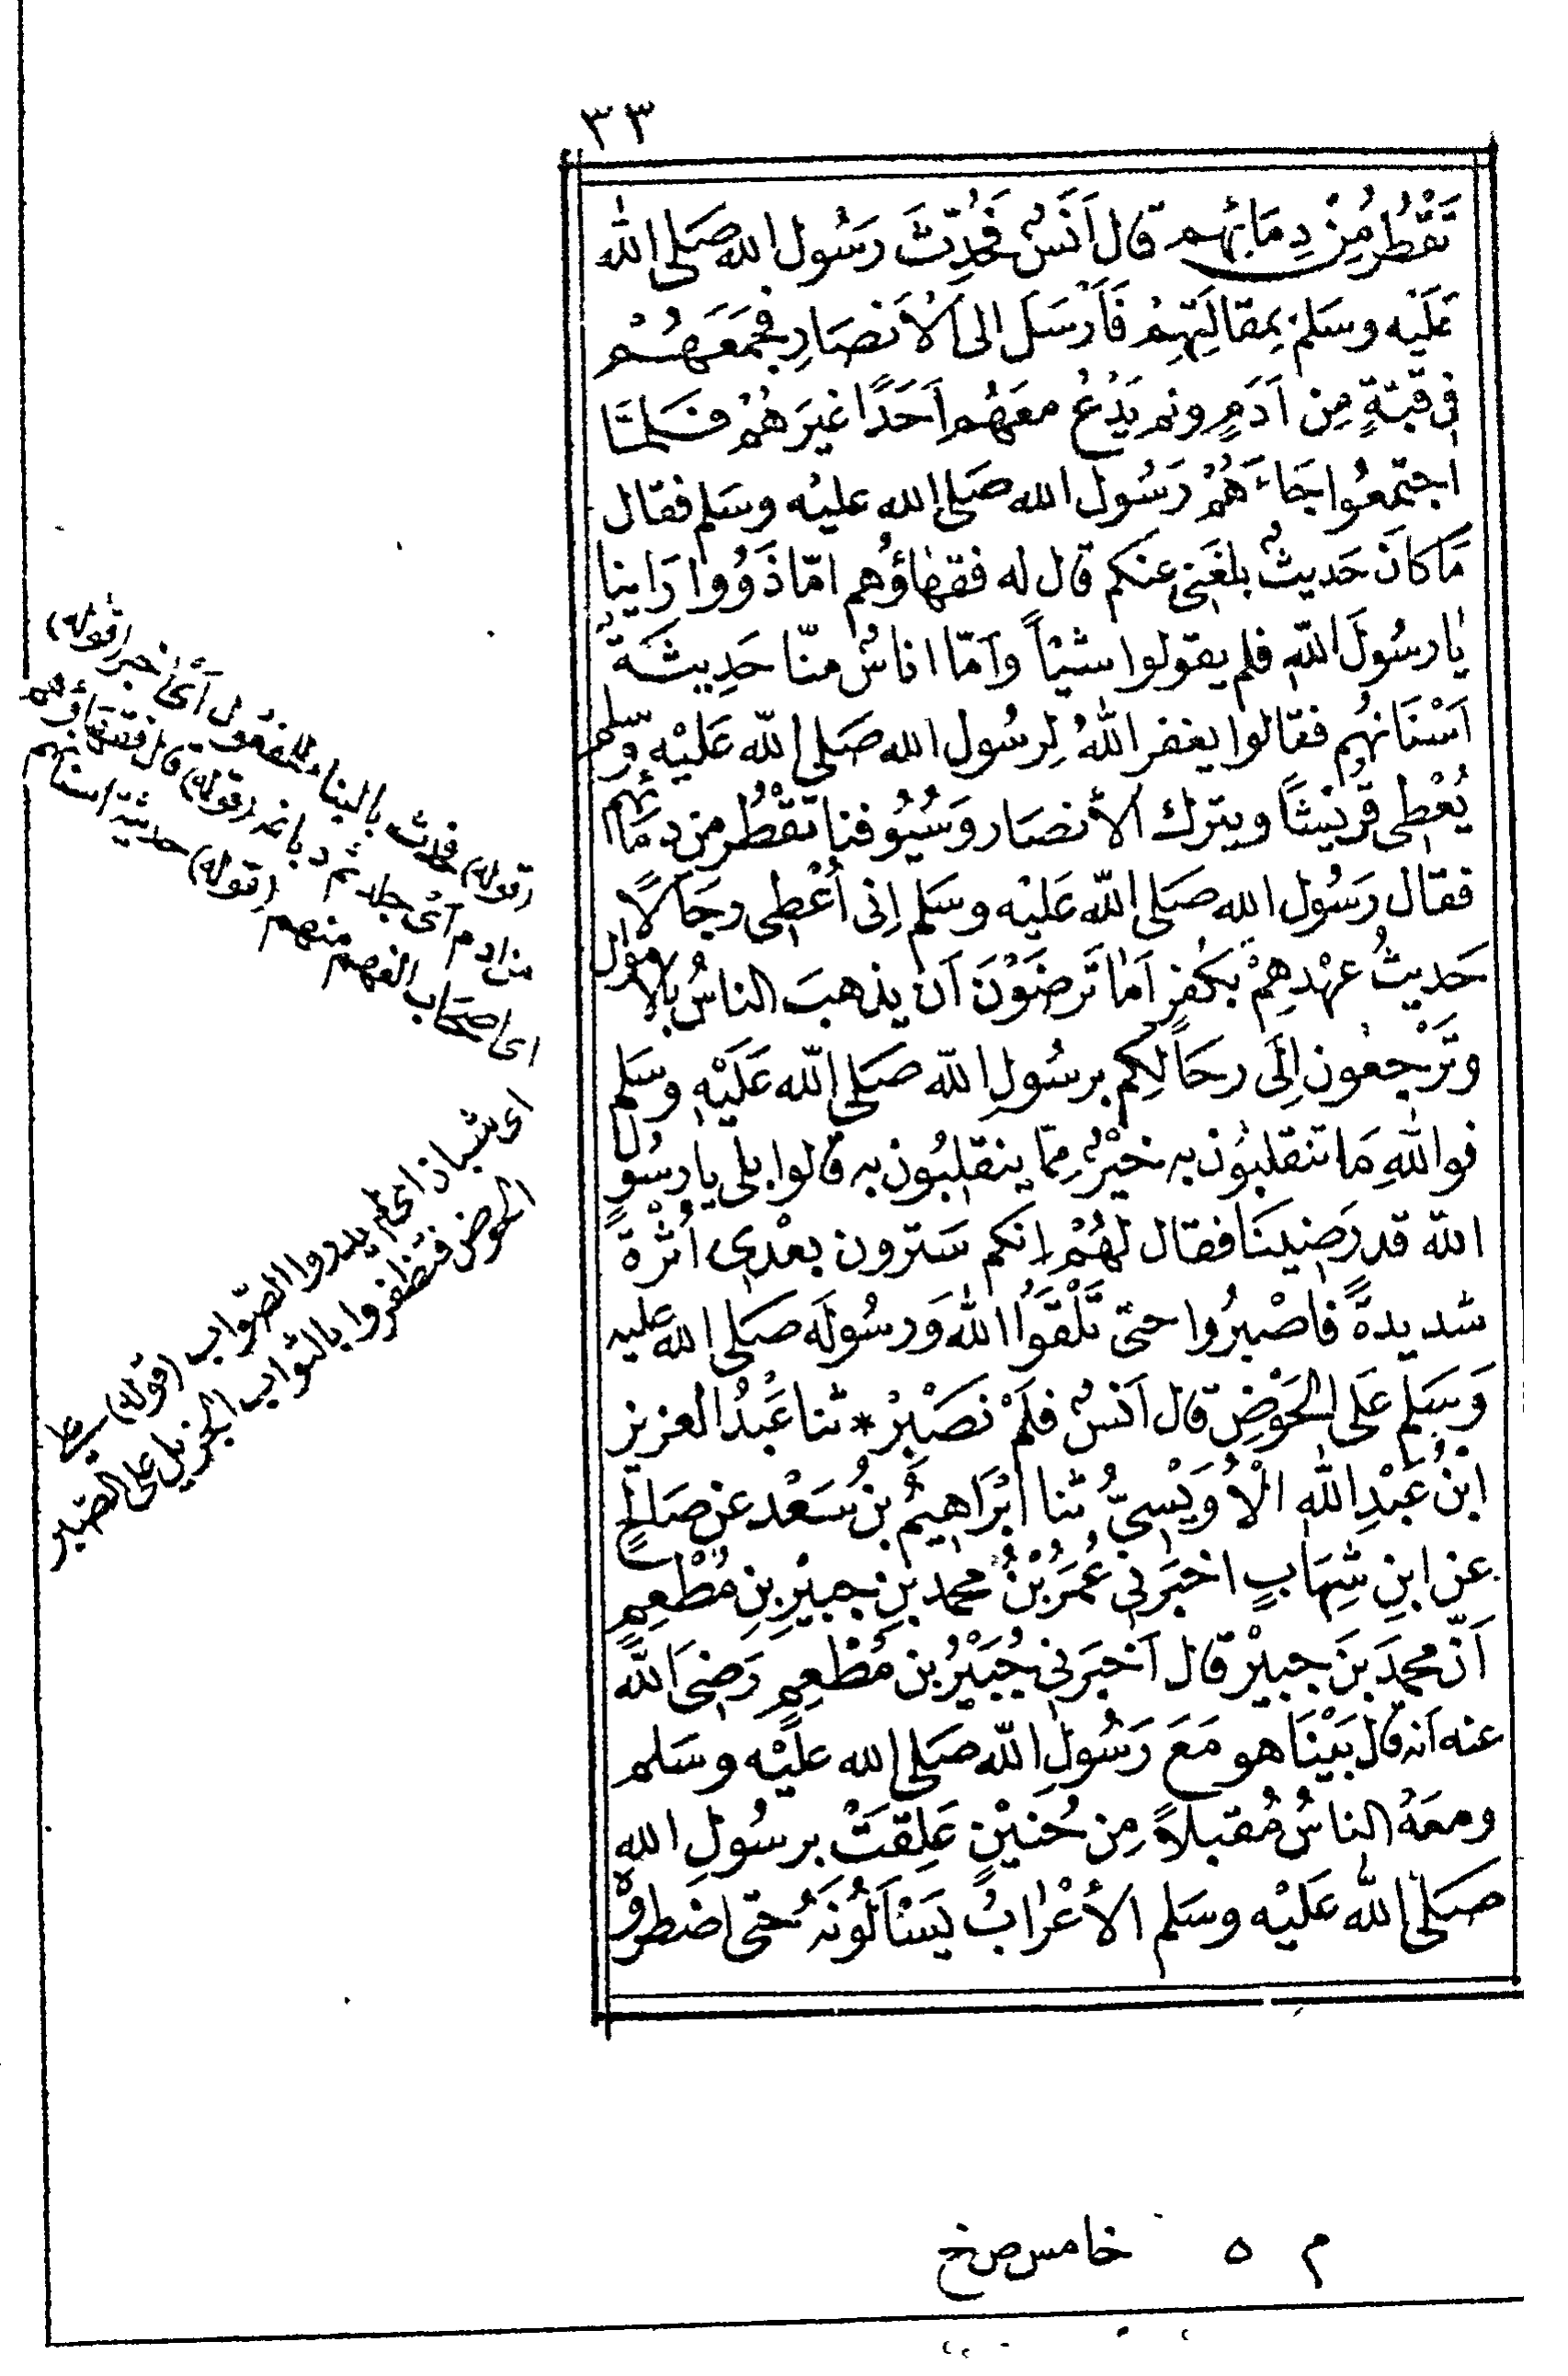 ٣٣
تَقْطُرُ مِنْ دِمَائِهِم قال اَنَسٌ فَحُدِّثَ رَسُول الله صَلى الله
عَلَيْه وسَلمْ بِمَقالَتِهِمْ فَاَرْسَلَ الى الاَنصَارِ فَجَمَعَهُمْ
فى قبّةٍ مِن اَدَمٍ ولم يَدْعُ معَهُم اَحَدًا غيَرَهُمْ فَلمّا
اجتمعُوا جَاءَهُمْ رَسُول الله صَلى الله عليْه وسَلم فقال
مَا كانَ حَديثٌ بلغَنى عنكم قال له فقهاؤُهم امّا ذَوُوا رَاينا
يا رسُولَ اللّهِ فلم يقولوا شيْأً وأمّا اناسٌ منّا حَدِيثَةٌ
اَسْنَانهُم فقالوا يغفر اللهُ لِرسُولِ الله صَلى اللّه عَلَيْه وسلم
يُعْطِى قُرَيْشًا ويترك الأنصَار وَسُيُوفنا تَقْطُر من دمَائهم
فقال رَسُول الله صَلى اللّه عَلَيْه وسَلم اِنى أُعْطِى رجَالاً
حَديثُ عهْدِهِمْ بكُفرٍ اَمَا تَرضَوْنَ اَن يذهبَ الناسُ بالاموال
وتَرْجعُون اِلَى رحَالِكم برسُولِ اللّه صَلى اللّه عَلَيْهِ وسَلم
فوالله مَا تنقلبُون به خيْرٌ مِمّا ينقلبُون به قالوا بلى يا رسُول
اللّه قد رَضينَا فقال لهُمْ اِنكم سَترون بعْدى اُثْرةً
شديدةً فاصْبرُوا حتى تَلْقَوُا اللهَ وَرسُولَه صَلى الله عليه
وَسَلم عَلى الحَوْضِ قال اَنسٌ فلَمْ نَصَبْرْ * ثنا عَبْدُ العزيز
ابْنُ عَبْدِ اللّهِ الْأُوَيْسِىُّ ثنا ابْرَاهيمُ بنُ سَعْد عن صَالحٍ
عن ابنِ شِهَابٍ اخبَرنى عُمَرُ بْنُ محمد بنِ جبيْرِ بنِ مُطْعِمٍ
اَنّ محمدَ بنَ جبيْرٍ قال اَخبَرَنى جُبَيْرُ بن مُطْعِمٍ رَضِىَ اللّهُ
عنه اَنه قال بَيْنَا هو مَعَ رَسُولِ اللّه صَلى الله عليْه وسَلم
ومعَهُ الناسُ مُقبلاً مِن حُنيْنٍ عَلِقتْ برسُولِ الله
صَلى الله عَلَيْه وسَلم الأعْرَابُ يَسْأَلُونَهُ حتى اضطروه
(قوله) فحدث بالبناء للمفعول اَى اُخبر (قوله)
من ادم اَى جلد ثم دباغه (قوله) قال فقهاؤهم
اى اصحَاب الفهم منهم (قوله) حديثة اسنانهم
اى شباذ اى لم يدروا الصّواب (قوله) على
الحوض فتظفروا بالثواب الجزيل على الصّبر
م ٥ خامس ص خ